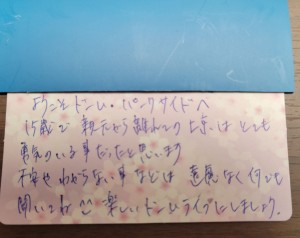 ようこそドンム・パークサイドへ
15歳で親元から離れての上京はとても
勇気のいる事だったと思います
不安やわからない事などは遠慮なく何でも
聞いてね 楽しいドームライフにしましょう。